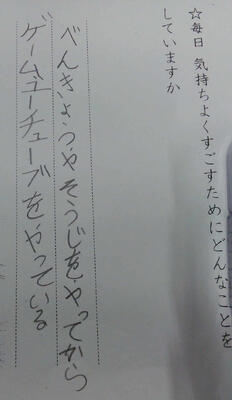 ☆毎日 気持ちよくすごすためにどんなことを
していますか
べんきょうやそうじをやってから
ゲーム、ユーチューブをやっている